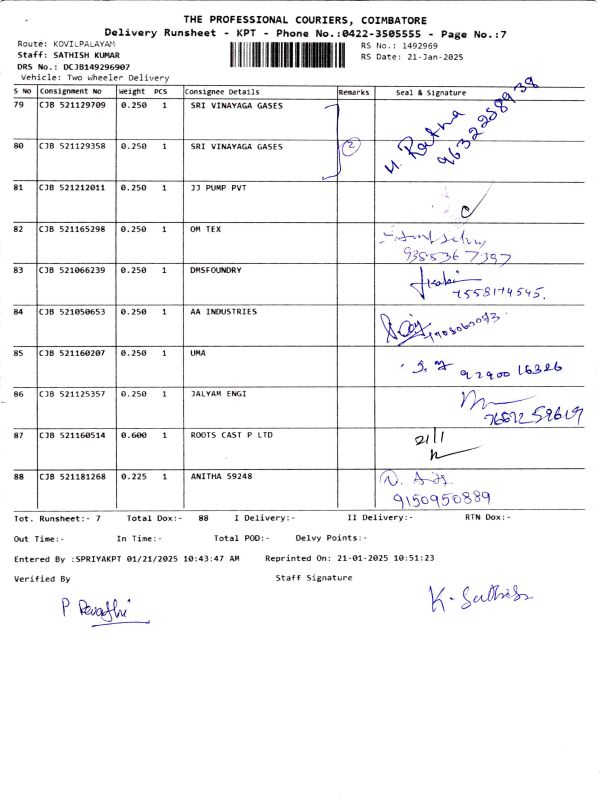 THE PROFESSIONAL COURIERS, COIMBATORE
Delivery Runsheet - KPT - Phone No.:0422-3505555 - Page No.:7
Route: KOVILPALAYAM RS No.: 1492969
Staff: SATHISH KUMAR RS Date: 21-Jan-2025
DRS No.: DCJB149296907
Vehicle: Two Wheeler Delivery
S NO Consignment No Weight PCS Consignee Details Remarks Seal & Signature
79 CJB 521129709 0.250 1 SRI VINAYAGA GASES
80 CJB 521129358 0.250 1 SRI VINAYAGA GASES 2 Ratna
81 CJB 521212011 0.250 1 JJ PUMP PVT
82 CJB 521165298 0.250 1 OM TEX
83 CJB 521066239 0.250 1 DMSFOUNDRY 7558174545.
84 CJB 521050653 0.250 1 AA INDUSTRIES
85 CJB 521160207 0.250 1 UMA
86 CJB 521125357 0.250 1 JALYAM ENGI
87 CJB 521160514 0.600 1 ROOTS CAST P LTD 21/1
88 CJB 521181268 0.225 1 ANITHA 59248
9150950889
Tot. Runsheet:- 7 Total Dox:- 88 I Delivery:- II Delivery:- RTN Dox:-
Out Time:- In Time:- Total POD:- Delvy Points:-
Entered By :SPRIYAKPT 01/21/2025 10:43:47 AM Reprinted On: 21-01-2025 10:51:23
Verified By Staff Signature
P Revathi K. Sathish